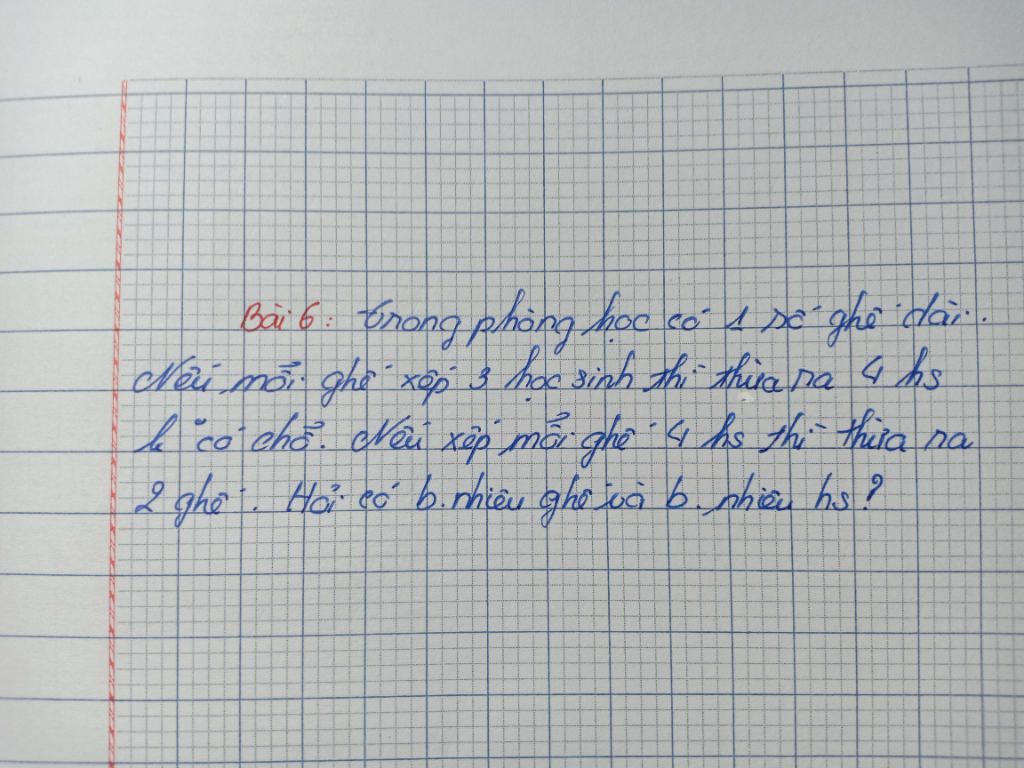 Bài 6: trong phòng học có 1 số ghế dài.
Nếu mỗi ghế xếp 3 học sinh thì thừa ra 4 hs
k có chỗ. Nếu xếp mỗi ghế 4 hs thì thừa ra
2 ghế. Hỏi có b.nhiêu ghế và b.nhiêu hs?